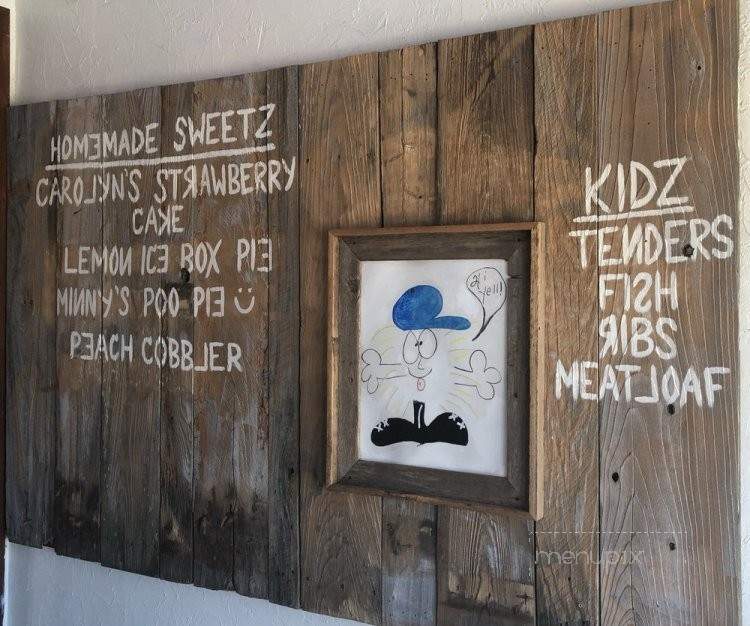 HOMEMADE SWEETZ
CAROLYN'S STRAWBERRY
CAKE
LEMON ICE BOX PIE
MINNY'S POO PIE
PEACH COBBLER
Hi
yell!
KIDZ
TENDERS
FISH
RIBS
MEATLOAF
menupix